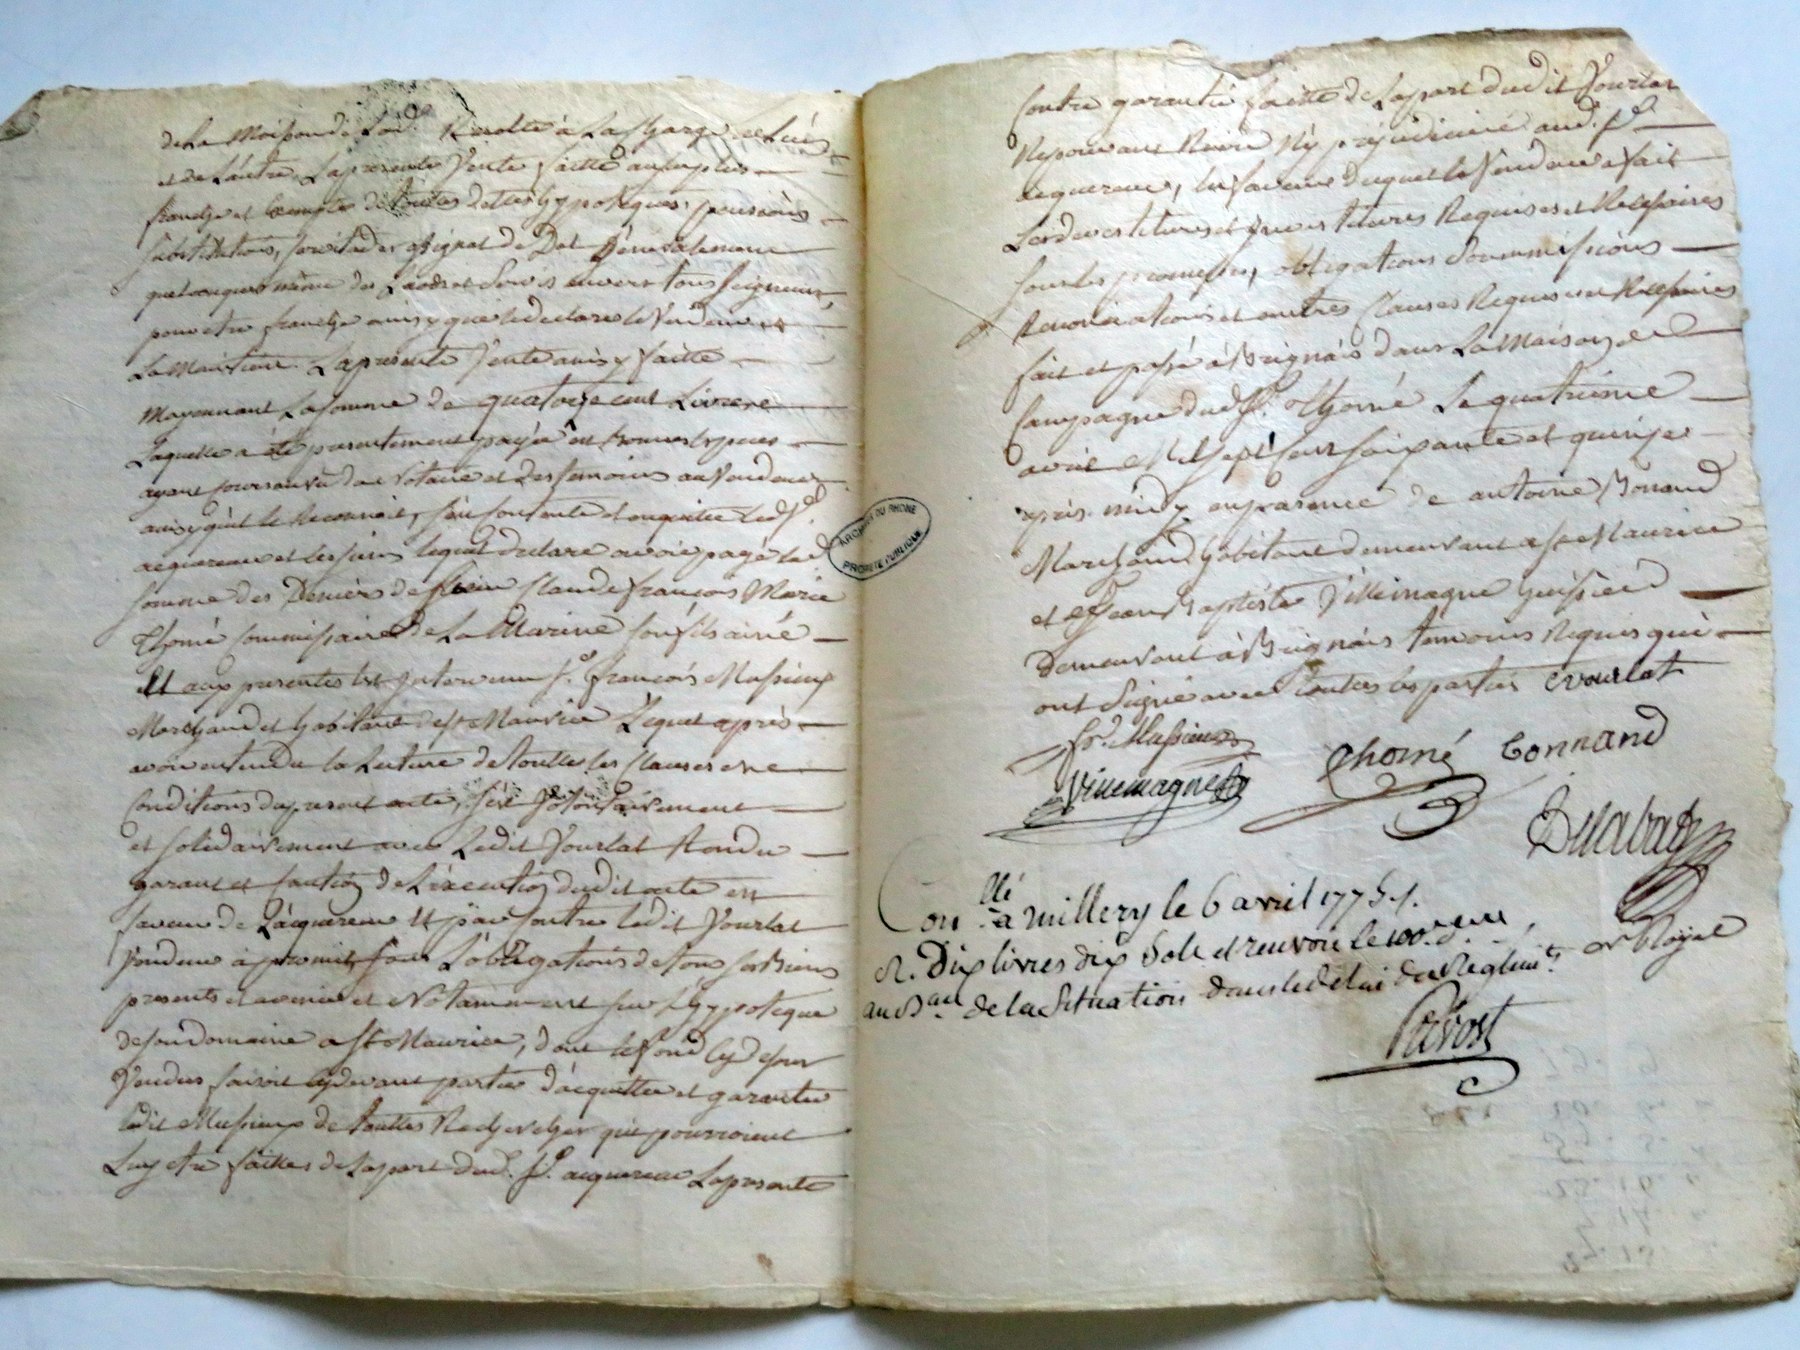 de La Moisson de Lad. Recolte à La Charge de L'un
et de L'autre, La presente Vente faitte au surplus
franche et Exempte de toutes dettes hypoteques, pensions
substitutions, servitudes assignat de Dot Généralement
quelconques même des Laods et Servis envers tous Seigneurs,
pour etre franche ainsy que le declare le Vendeur et
La Maintient. La presente Vente ainsy faitte
Moyennant La somme de quatorze cent Livres
Laquelle a été presentement payée en bonnes Especes
ayant cours au vû du Notaire et des temoins au Vendeur
ainsy qu'il le Reconnoit, s'en contente et en quitte Led. Sr.
acquereur et les siens lequel declare avoir payé lad.
somme des Deniers de Sieur Claude françois Marie
Thomé Commissaire de La Marine son fils ainé
Et aux presentes Est Intervenu Sr. françois Massieux
Marchand et habitant de St Maurice Lequel après
avoir entendu la Lecture de toutes les Clauses et
Conditions du present acte, s'est Volontairement
et solidairement avec Ledit Yvourlat Rendu
garant et Caution de L'execution dudit acte en
faveur de L'acquereur Et par Contre ledit Yvourlat
Vendeur a promis, sous L'obligations de tous ses Biens
presents et avenir et Notamment sur L'hypoteque
de son domaine a St Maurice, dont le fond cy dessus
Vendus faisoit cy devant partie d'acquitter et garantir
ledit Massieux de touttes Recherches qui pourroient
Luy etre faittes de La part dud. Sr. acquereur La presente
Contre garantie faitte de La part dudit Yvourlat
Ne pouvant Nuire Ny prejudicier aud. Sr.
acquereur, en faveur duquel le Vendeur a fait
Les devestitures et Investitures Requises et Necessaires
sous les promesses, obligations Soummissions
Renonciations et autres Clauses Requises et Necessaires
fait et passé à Brignais dans La Maison de
Campagne dud. Sr. Thomé Le quatrieme
avril Mil sept Cent soixante et quinze
après midy en presence de antoine Bonnand
Marchand habitant demeurant a St Maurice
et de Jean Baptiste Villemagne huissier
Demeurant à Brignais temoins Requis qui
ont Signé avec toutes les parties Evourlat
fr. Massieux
Thomé Bonnand
Villemagne
Dulabad
Conllé à millery le 6 avril 1775 f.
R. Dix livres dix Sols et renvoi le 100me d.
au Bau. de la Situation dans le delai du Reglemt.
Prévost
nre Royal
ARCHIVES DU RHONE
PROPRIETE PUBLIQUE